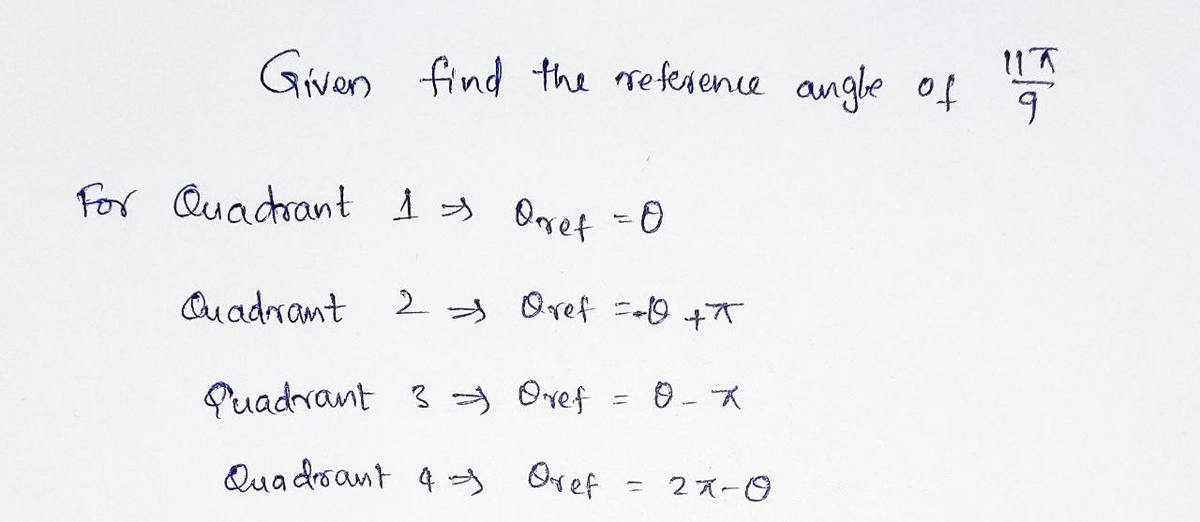 Given find the reference angle of 11π/9
For Quadrant 1 ⇒ θref = θ
Quadrant 2 ⇒ θref = -θ + π
Quadrant 3 ⇒ θref = θ - π
Quadrant 4 ⇒ θref = 2π - θ